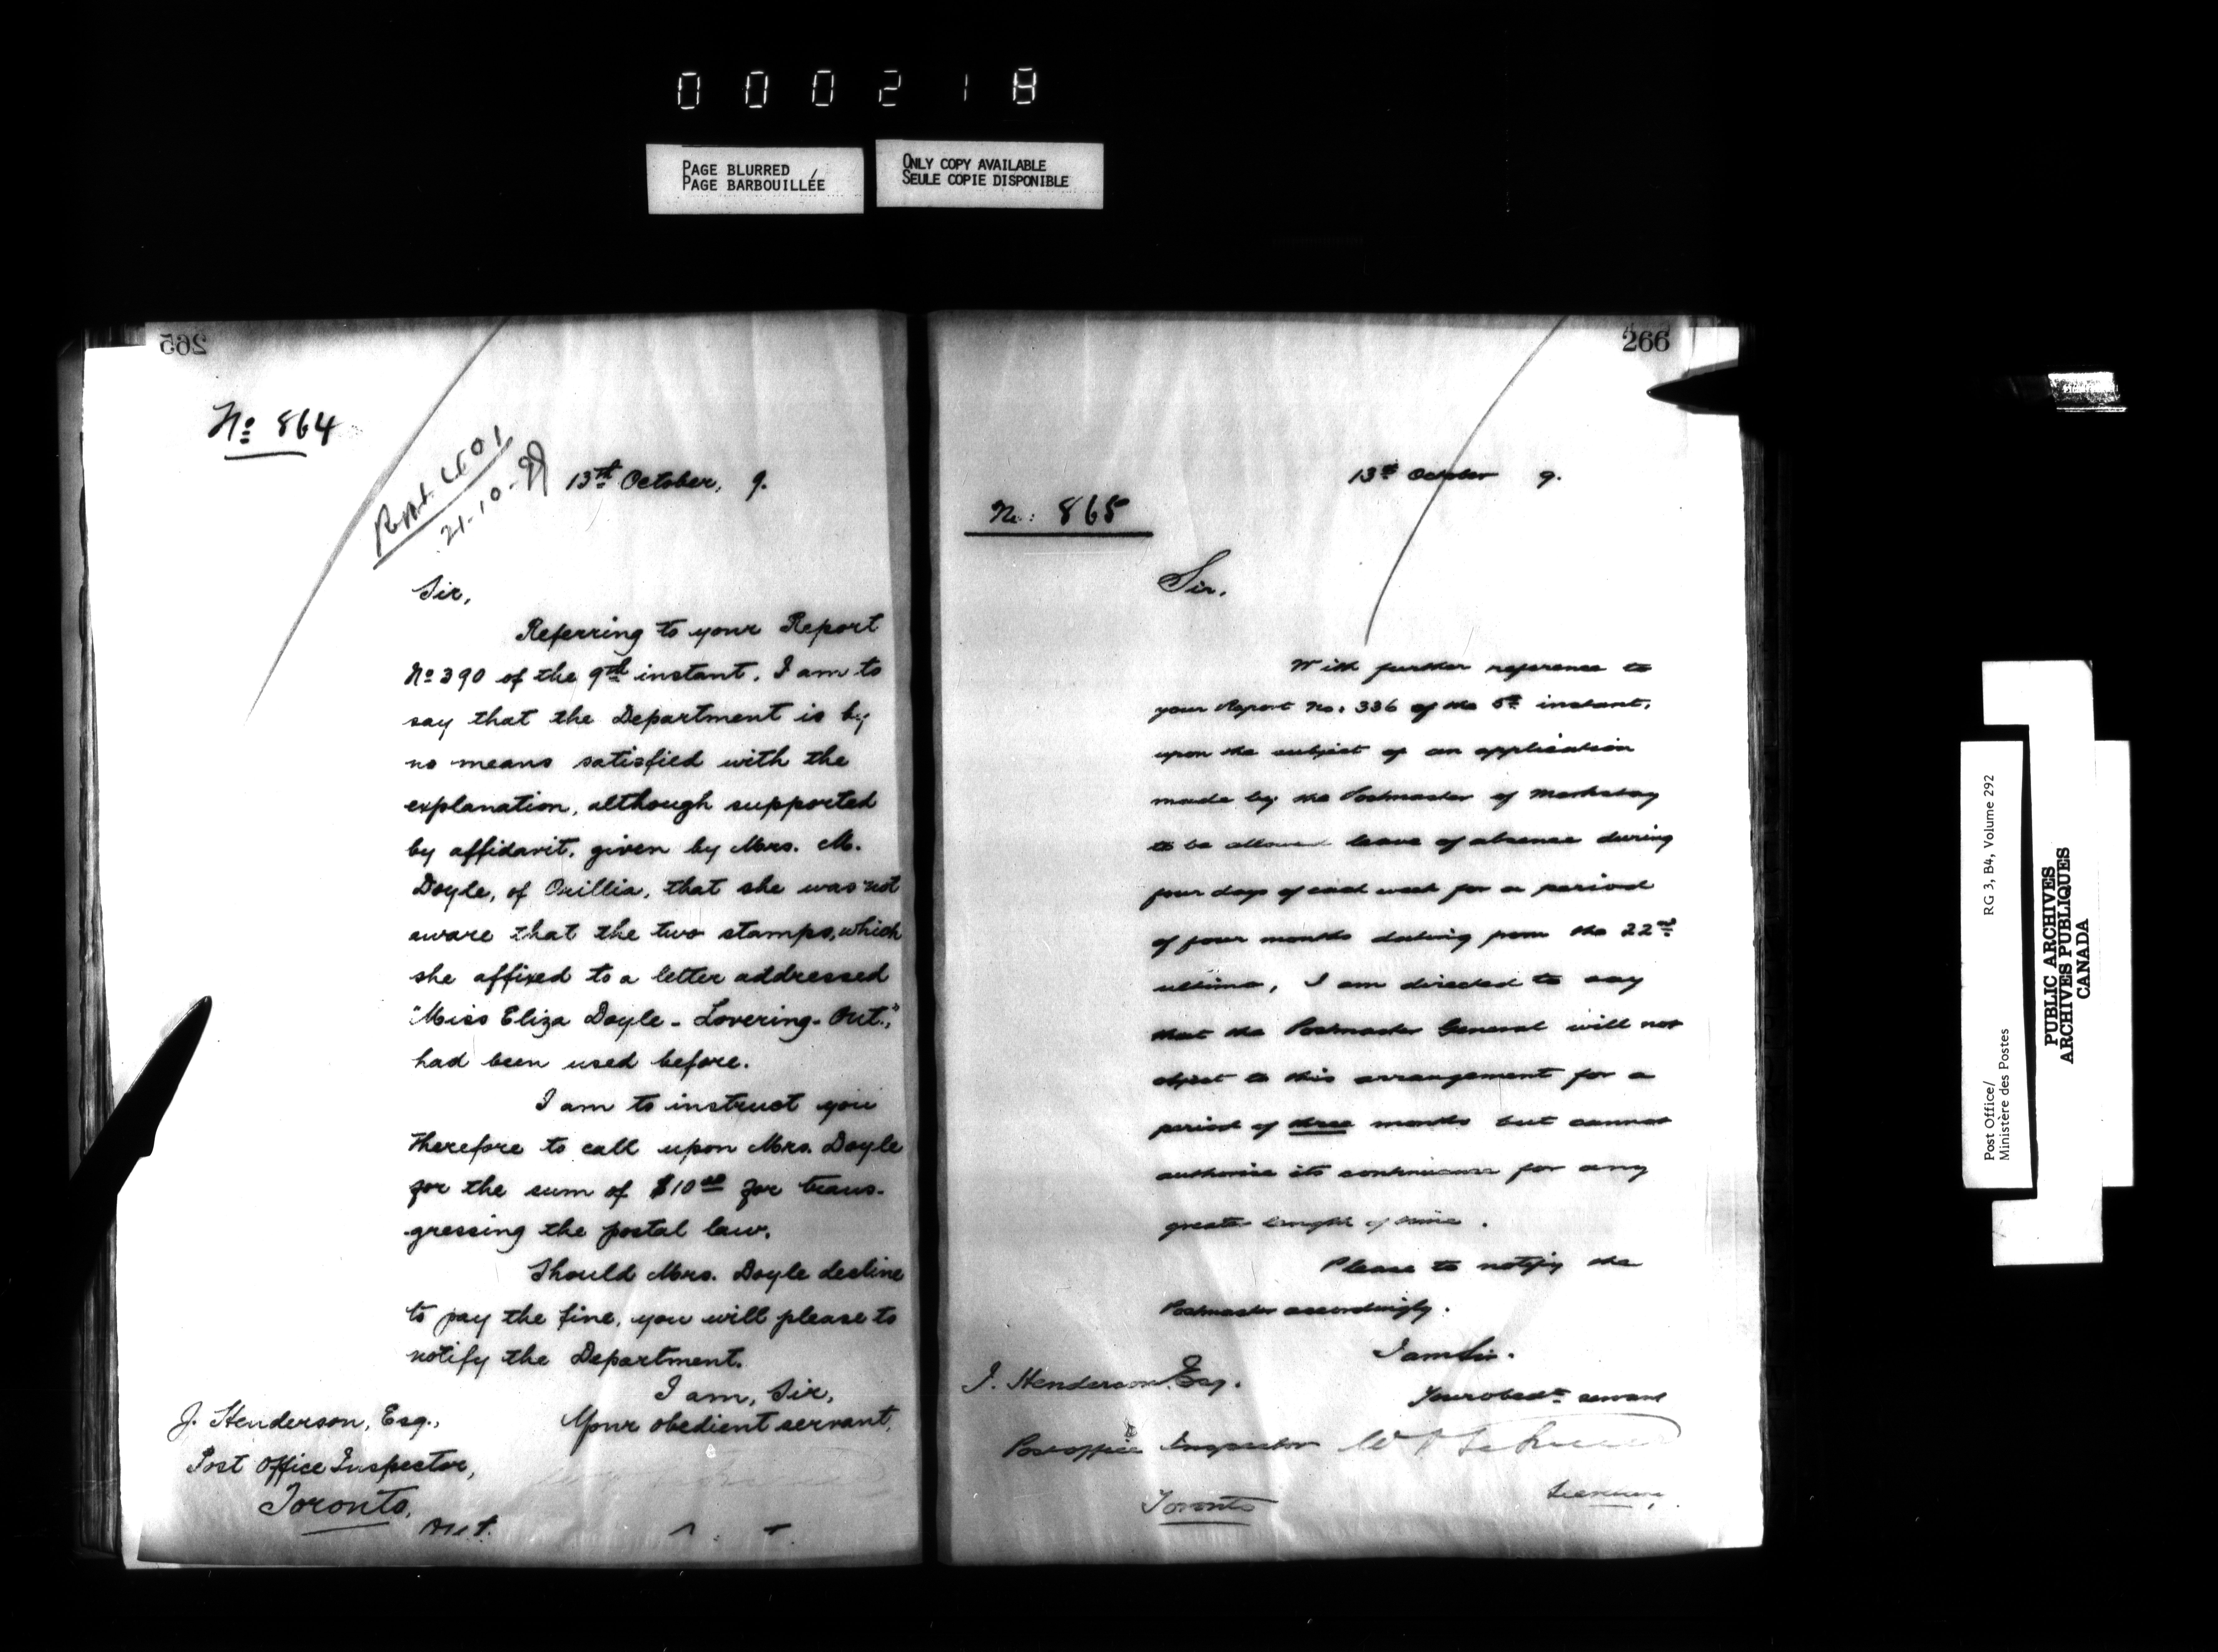 000218
PAGE BLURRED
PAGE BARBOUILLÉE
ONLY COPY AVAILABLE
SEULE COPIE DISPONIBLE
265
No 864
21-10-99
13th October, 9.
Sir,
Referring to your Report
No 390 of the 9th instant, I am to
say that the Department is by
no means satisfied with the
explanation, although supported
by affidavit, given by Mrs. M.
Doyle, of Orillia, that she was not
aware that the two stamps, which
she affixed to a letter addressed
"Miss Eliza Doyle - Lovering - Ont.,"
had been used before.
I am to instruct you
therefore to call upon Mrs. Doyle
for the sum of $10.00 for trans-
gressing the postal law.
Should Mrs. Doyle decline
to pay the fine, you will please to
notify the Department.
I am, Sir,
Your obedient servant,
J. Henderson, Esq.,
Post Office Inspector,
Toronto,
Ont.
266
13th October 9.
No. 865
Sir,
With further reference to
your Report No. 336 of the 5th instant,
upon the subject of an application
made by the Postmaster of Markstay
to be allowed leave of absence during
four days of each week for a period
of four months dating from the 22nd
ultimo, I am directed to say
that the Postmaster General will not
object to this arrangement for a
period of three months but cannot
authorise its continuance for any
greater length of time.
Please to notify the
Postmaster accordingly.
I am Sir.
Your obedt. servant
J. Henderson, Esq.
Post office Inspector
Toronto
Secretary,
Post Office/
Ministère des Postes
RG 3, B4, Volume 292
PUBLIC ARCHIVES
ARCHIVES PUBLIQUES
CANADA